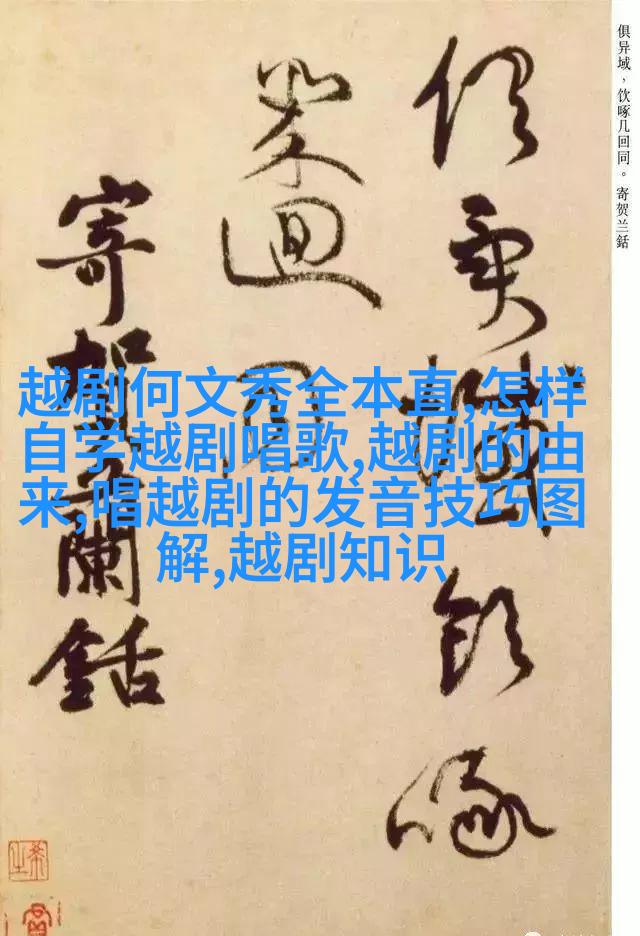 俱异域，饮啄几回同。寄贺兰銛
俱異域飲啄
幾迴同
寄賀蘭銛
越剧何文秀全本直,怎样
自学越剧唱歌,越剧的由
来,唱越剧的发音技巧图
解,越剧知识